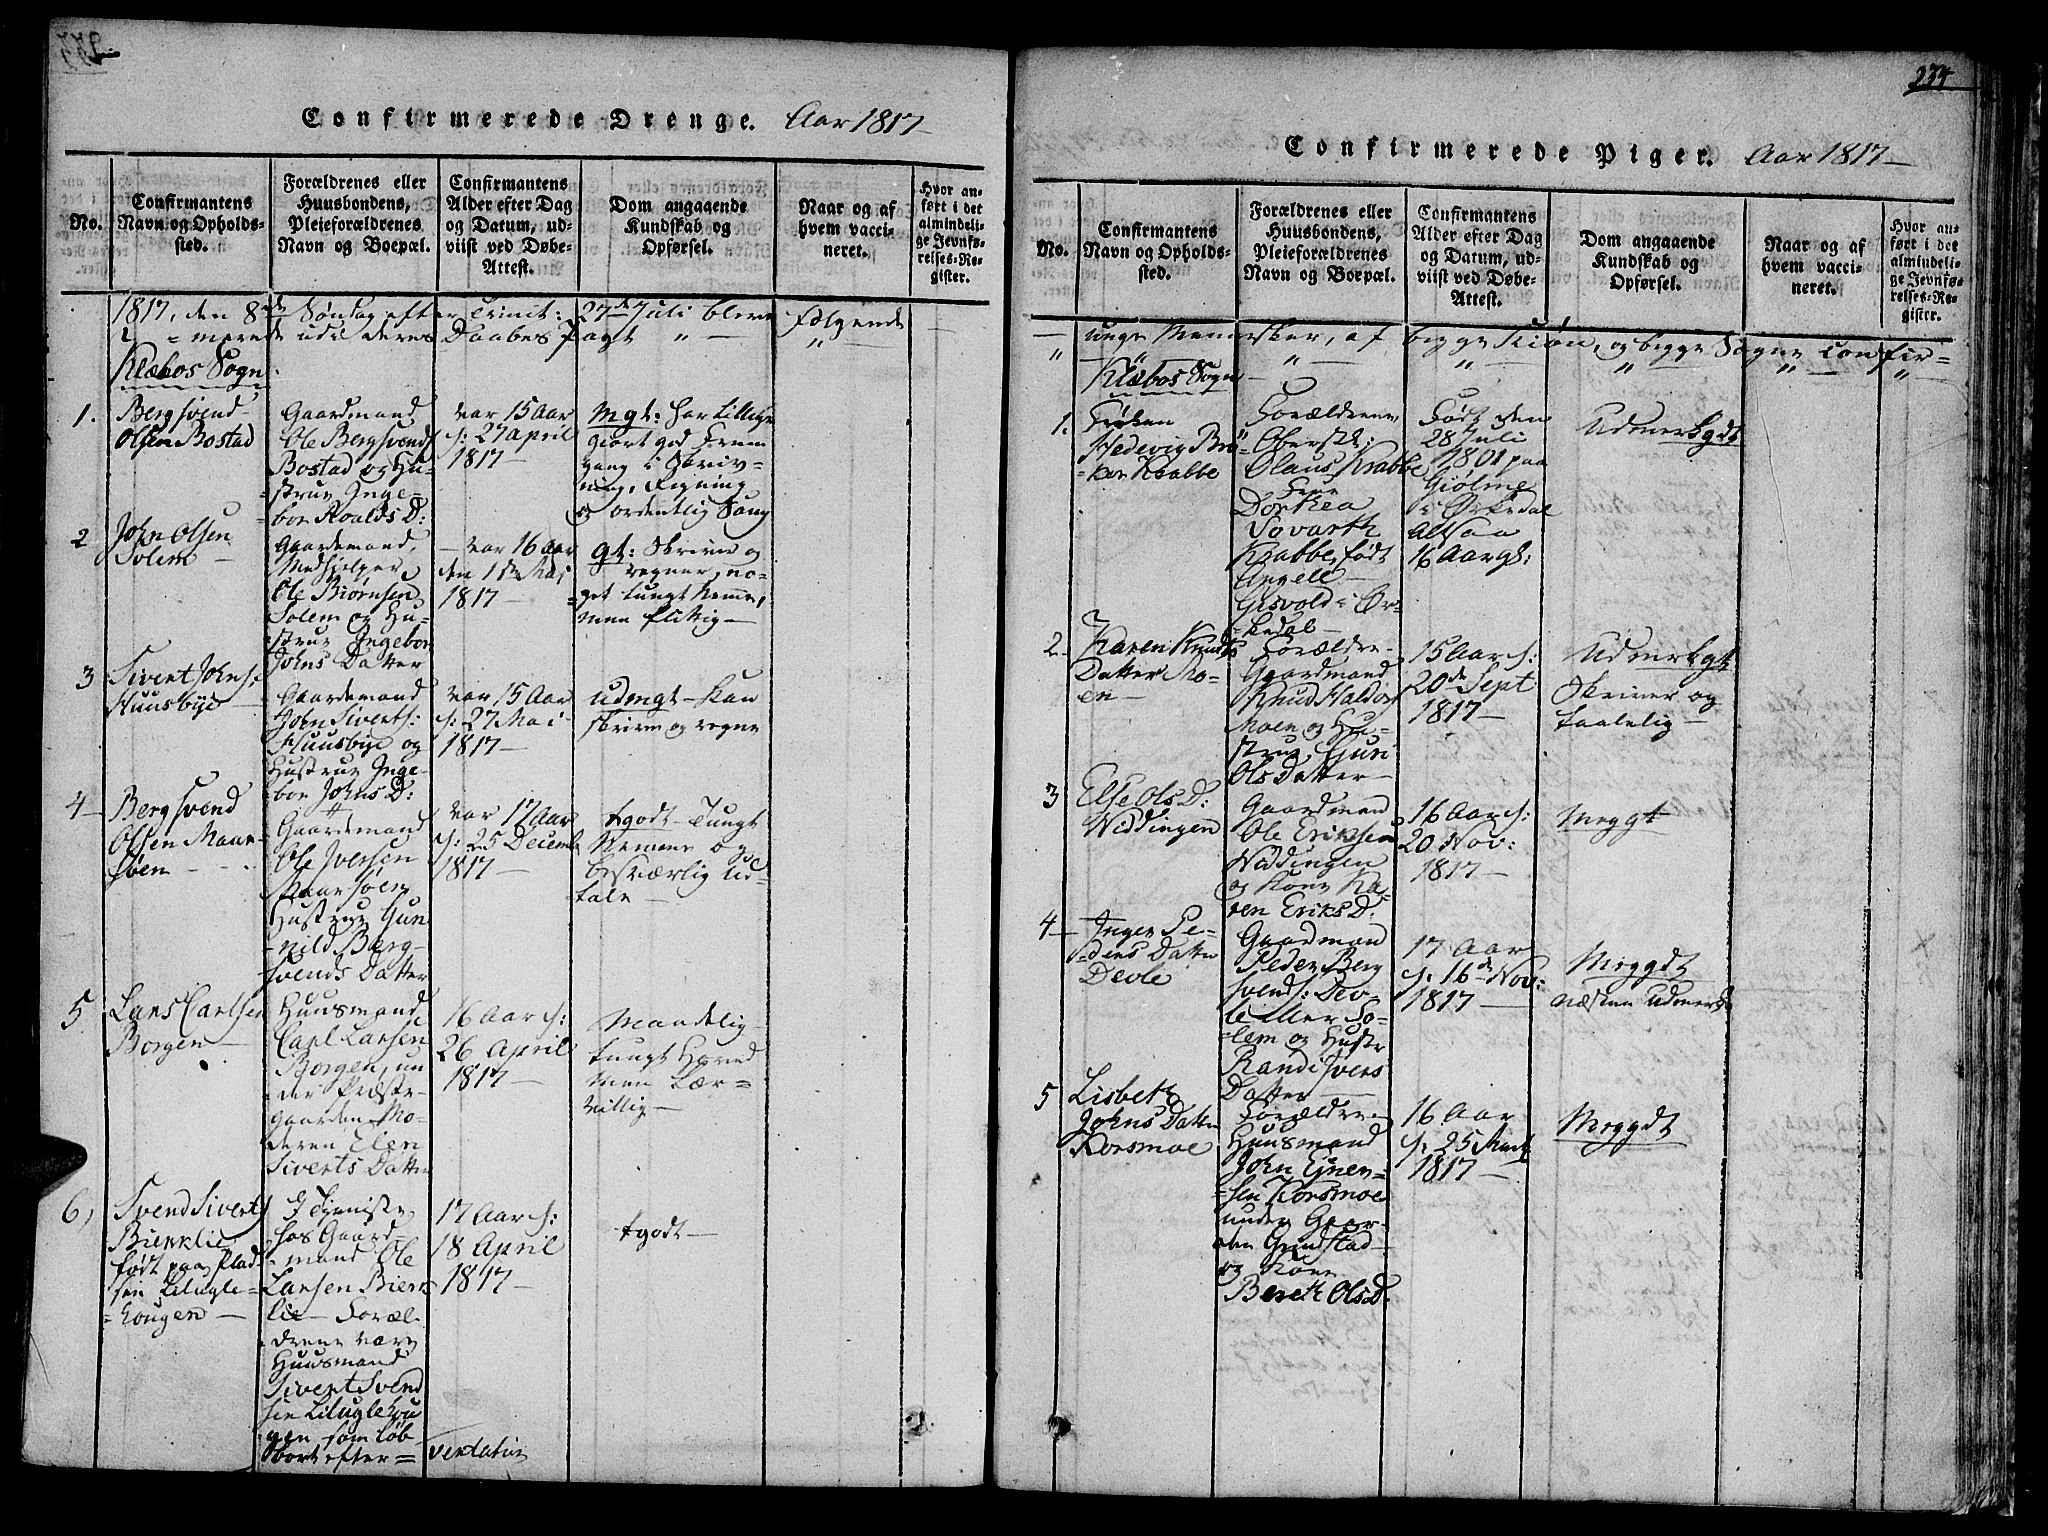 Confirmerede Drenge. Aar 1817
No.
Confirmantens
Navn og Opholds-
sted.
Forældrenes eller
Huusbondens,
Pleieforældrenes
Navn og Boepæl.
Confirmantens
Alder efter Dag
og Datum, ud-
viist ved Døbe-
Attest.
Dom angaaende
Kundskab og
Opførsel.
Naar og af
hvem vacci-
neret.
Hvor an-
ført i det
almindeli-
ge Jevnfø-
relses-Re-
gister.
1817, den 8de Søndag efter Trinit: 27de Juli bleve følgende
merede udi deres Daabes Pagt
Klæbos Sogn
1. Bergsvend
Olsen Bostad
Gaardmand
Ole Bergsvends
Bostad og Hu-
strue Inge-
bor Roalds D:
var 15 Aar
s: 27 April
1817
Mgt: har tillige
giort god Frem
gang i Skriv-
ning, Regning
og ordentlig Sang
2 John Olsen
Solem
Gaardemand,
Medhjelper
Ole Biørnsen
Solem og Hu-
strue Ingebor
Johns Datter
var 16 Aar
den 1ste Mai
1817
gt: Skriver og
regner, no-
get tungt Nemme,
men flittig
3 Sivert Johns:
Huusbye
Gaardemand
John Siverts:
Huusbye og
Hustrue Inge-
bor Johns D:
var 15 Aar
s: 27 Mai
1817
udmgt - kan
skrive og regne
4 Bergsvend
Olsen Maar-
søen
Gaardemand
Ole Iversen
Maarsøen
Hustrue Gun
nild Berg-
svends Datter
var 17 Aar
s: 25 Decemb
1817
tgodt - Tungt
Nemme og
besværlig Ud-
tale
5 Lars Carlsen
Borgen
Huusmand
Carl Larsen
Borgen, un
der Præste-
gaarden Mo-
deren Elen
Siverts Datter
16 Aar s:
26 April
1817
Maadelig
tungt Hoved
men Lær-
villig
6) Svend Siverts
Bierklie
født paa Plad-
sen Lilugle-
hougen
I Tjeniste
hos Gaard-
mand Ole
Larsen Bierk
lie - Foræl-
drene vare
Huusmand
Sivert Svend
sen Liluglehou
gen som løb
bort efter=
17 Aar s:
18 April
1817
tgodt
Vertatur
234
Confirmerede Piger. Aar 1817
No.
Confirmantens
Navn og Opholds-
sted.
Forældrenes eller
Huusbondens,
Pleieforældrenes
Navn og Boepæl.
Confirmantens
Alder efter Dag
og Datum, ud-
viist ved Døbe-
Attest.
Dom angaaende
Kundskab og
Opførsel.
Naar og af
hvem vacci-
neret.
Hvor an-
ført i det
almindeli-
ge Jevnfø-
relses-Re-
gister.
unge Mennesker, af begge Kiøn, og begge Sogne confir=
Klæbos Sogn
1. Frøken
Hedevig Bro
ker Krabbe
Forældrene
Oberstl:
Olaus Krabbe
Frue
Dorthea
Sovarth
Krabbe, født
Angell
Gisvold i Ør-
kedal
Født den
28 Juli
1801 paa
Giølme
i Ørkedal
altsaa
16 Aar gl:
Udmerkgdt
2. Karen Knuds
Datter Mo-
en
Forældre
Gaardmand
Knud Haldors
Moen og Hu-
strue Guri
Olsdatter
15 Aar s:
20de Sept
1817
Udmerkgdt
Skriver og
taalelig
3 Else Ols D:
Niddingen
Gaardmand
Ole Eriksen
Niddingen
og Kone Ka-
ren Eriks D.
16 Aar s:
20 Nov:
1817
Meggt
4 Inger Pe-
ders Datter
Devle
Gaardmand
Peder Berg
svends: Dev-
le eller So-
lem og Hustr
Randi Ivers
Datter
17 Aar
s: 16de Nov:
1817
Meggdt
næsten udmerk
5 Lisbeth
Johns Datter
Korsmoe
Forældre
Huusmand
John Ejnen-
sen Korsmoe
under Gaar-
den Grindstad
og Kone
Bereth Ols D.
16 Aar
s: 25 Marts
1817
Meggdt